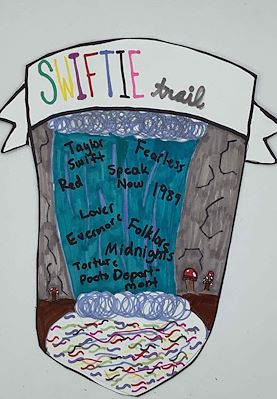 SWIFTIE trail
Taylor Swift
Fearless
Red
Speak Now
1989
Lover
Evermore
Folklore
Midnights
Torture
Poets Depart-
ment